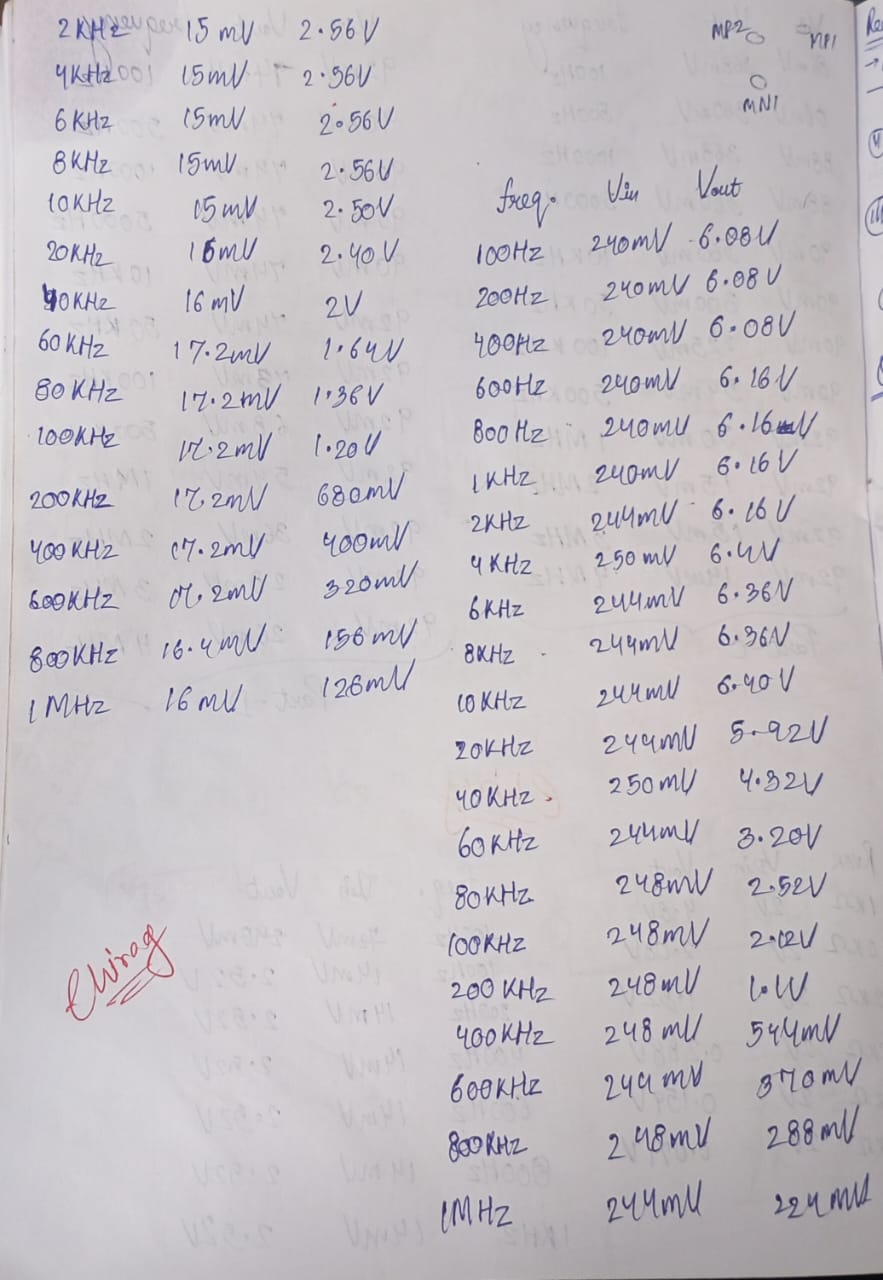 2KHz 15mV 2.56V
4KHz 15mV 2.56V
6KHz 15mV 2.56V
8KHz 15mV 2.56V
10KHz 15mV 2.50V
20KHz 16mV 2.40V
40KHz 16mV 2V
60KHz 17.2mV 1.64V
80KHz 17.2mV 1.36V
100KHz 17.2mV 1.20V
200KHz 17.2mV 680mV
400KHz 17.2mV 400mV
600KHz 17.2mV 320mV
800KHz 16.4mV 156mV
1MHz 16mV 126mV
Chirag
MP2 MP1
MN1
freq. Vin Vout
100Hz 240mV 6.08V
200Hz 240mV 6.08V
400Hz 240mV 6.08V
600Hz 240mV 6.16V
800Hz 240mV 6.16V
1KHz 240mV 6.16V
2KHz 244mV 6.16V
4KHz 250mV 6.4V
6KHz 244mV 6.36V
8KHz 244mV 6.36V
10KHz 244mV 6.40V
20KHz 244mV 5.92V
40KHz 250mV 4.32V
60KHz 244mV 3.20V
80KHz 248mV 2.52V
100KHz 248mV 2.12V
200KHz 248mV
400KHz 248mV 544mV
600KHz 244mV 370mV
800KHz 248mV 288mV
1MHz 244mV 224mV